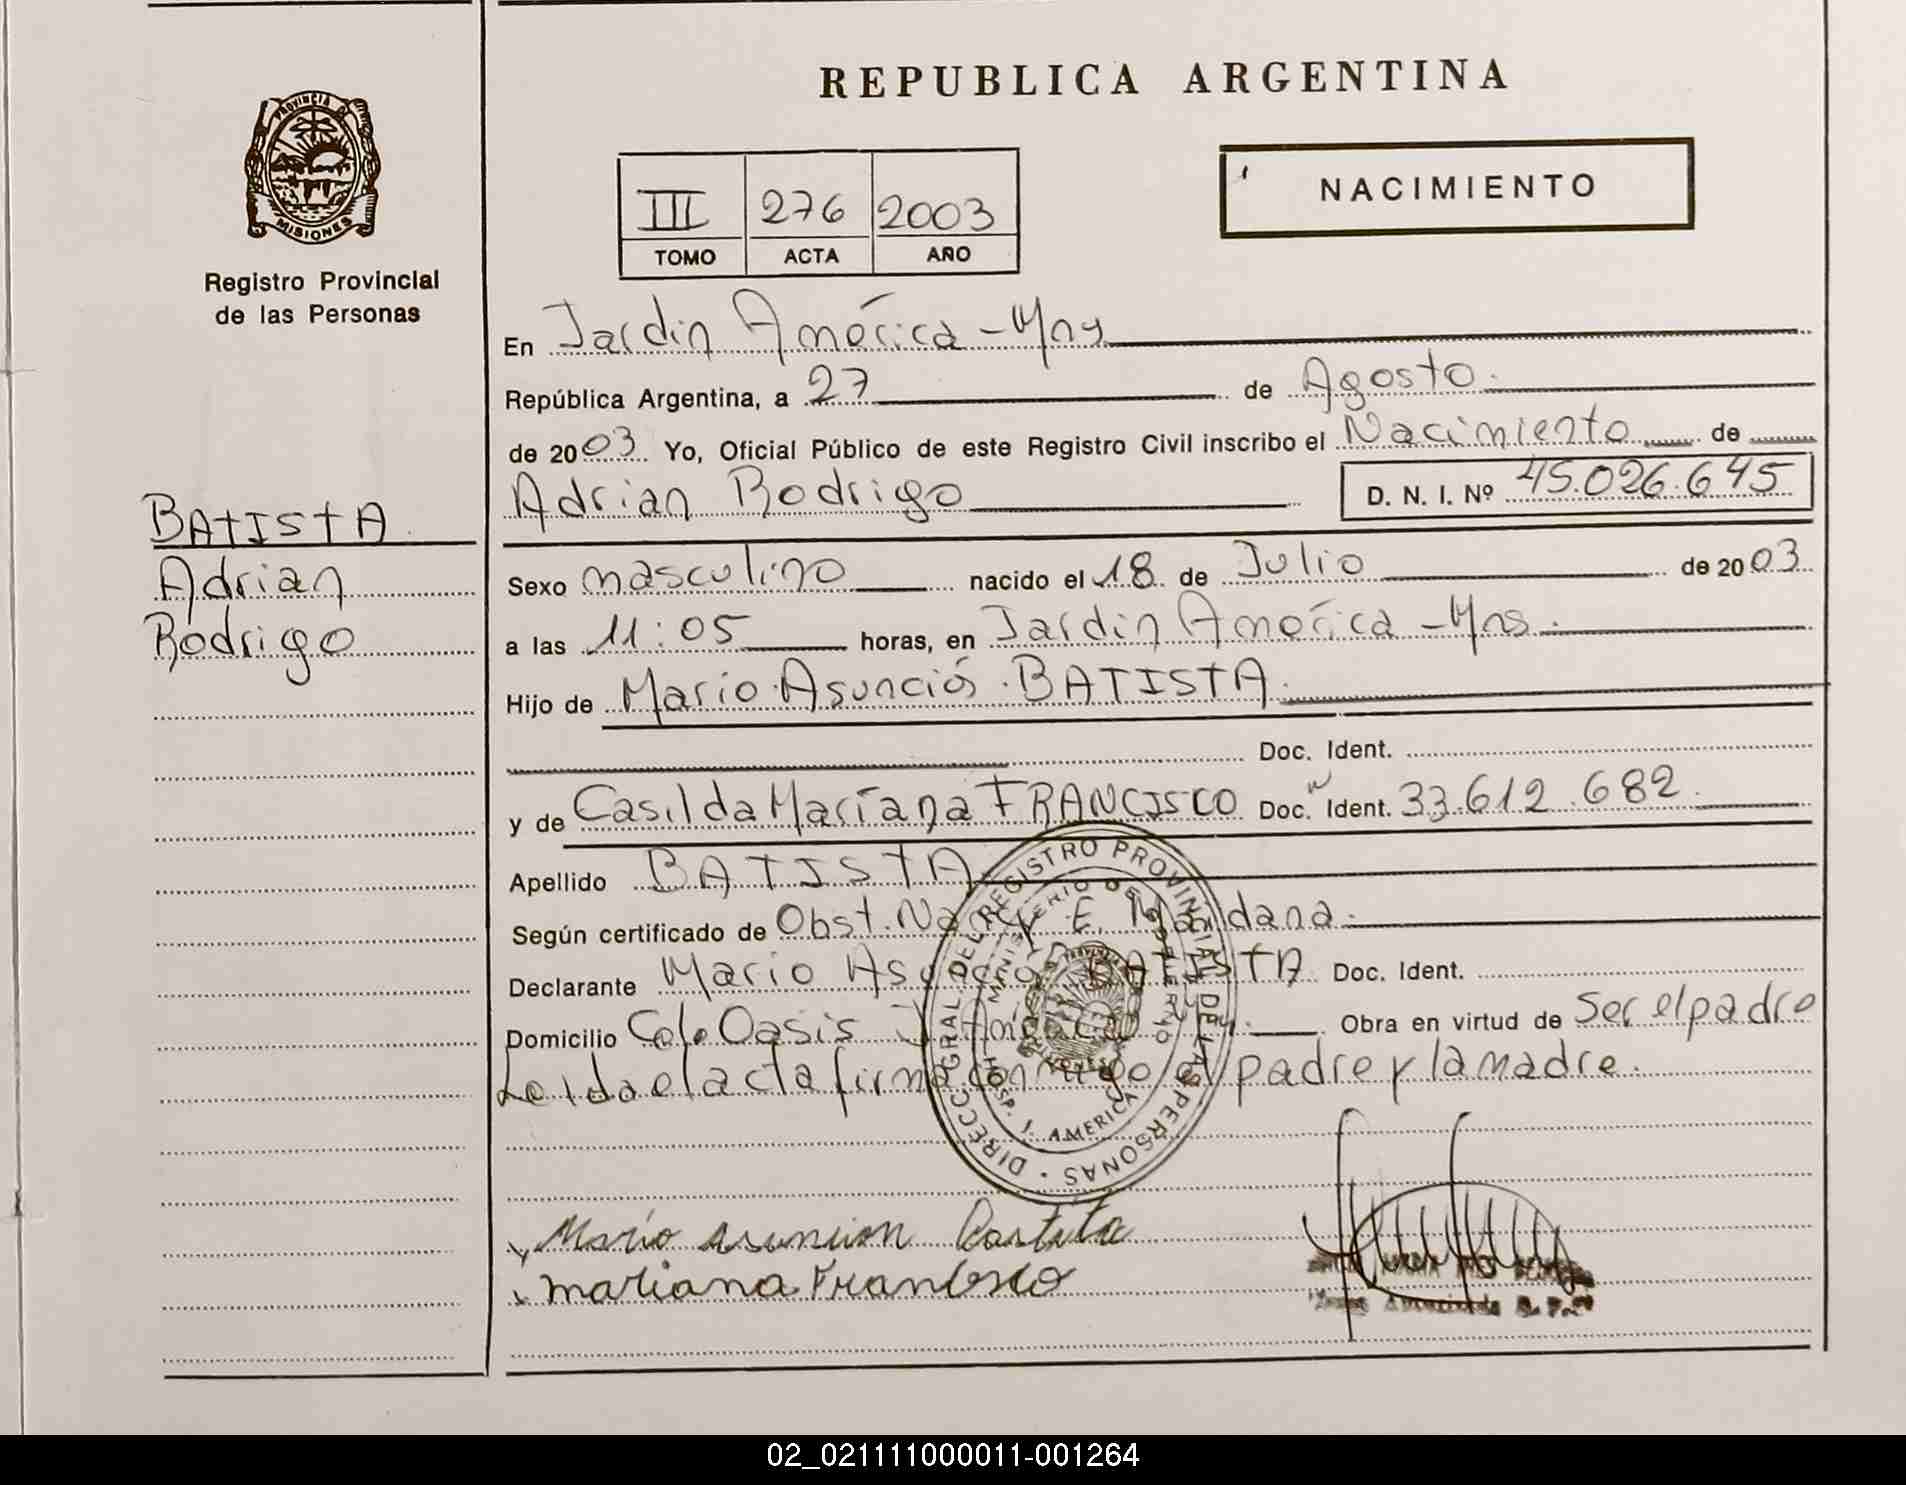 REPUBLICA ARGENTINA
PROVINCIA D
MISIONES
Registro Provincial
de las Personas
NACIMIENTO
III 276 2003
TOMO ACTA AÑO
En Jardin América - Mns
República Argentina, a 27 de Agosto.
de 2003. Yo, Oficial Público de este Registro Civil inscribo el Nacimiento de
Adrian Rodrigo
D. N. I. Nº 45.026.645
BATISTA
Adrian
Rodrigo
Sexo masculino nacido el 18 de Julio de 2003
a las 11:05 horas, en Jardin América - Mns.
Hijo de Mario Asunción BATISTA
Doc. Ident.
y de Casilda Mariana FRANCISCO Doc. Ident. 33.612.682
Apellido BATISTA
Según certificado de Obst. Nancy E. Maidana.
Declarante Mario Asunción BATISTA Doc. Ident.
Domicilio Col. Oasis J. América Obra en virtud de Ser el padre
Leida el acta firma conmigo el padre y la madre.
DIRECC. GRAL. DEL REGISTRO PROVINCIAL DE LAS PERSONAS
MINISTERIO DE
HOSP. J. AMERICA
Mario Asuncion Bastita
mariana Francisco
02_021111000011-001264